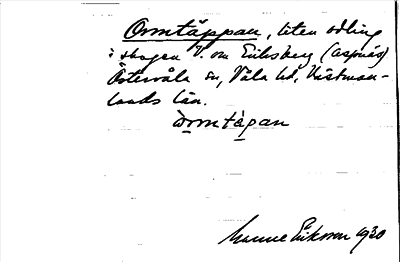 Ormtäppan, liten odling
i skogen V. om Eriksberg (Aspnäs)
Östervåla sn, Våla hd, Västman-
lands län.
òrmtäpan
Manne Eriksson 1930